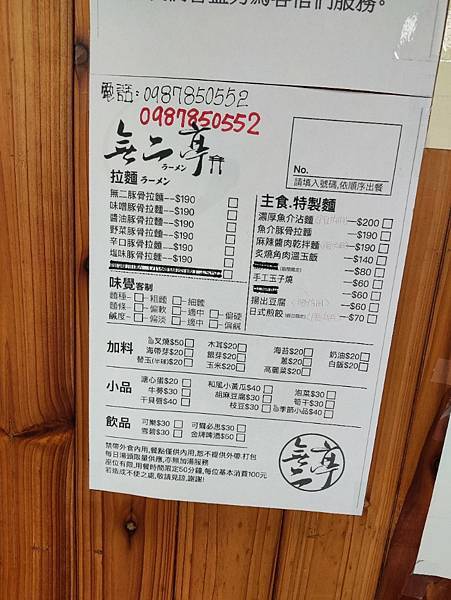 電話:0987850552
0987850552
無二亭
ラーメン
No.
請填入號碼,依順序出餐
拉麵 ラーメン
無二豚骨拉麵--$190
味噌豚骨拉麵--$190
醬油豚骨拉麵--$190
野菜豚骨拉麵--$190
辛口豚骨拉麵--$190
塩味豚骨拉麵--$190
主食.特製麵
濃厚魚介沾麵 --$200
魚介豚骨拉麵 --$190
麻辣醬肉乾拌麵 --$190
炙燒角肉溫玉飯 --$140
--$80
手工玉子燒 --$60
--$60
揚出豆腐 --$60
日式煎餃 --$70
味覺客制
麵種- 粗麵 細麵
麵條- 偏軟 適中 偏硬
鹹度- 偏淡 適中 偏鹹
加料
叉燒$50 木耳$20 海苔$20 奶油$20
海帶芽$20 銀芽$20 蔥$20 白飯$20
替玉(半球)$20 玉米$20 高麗菜$20
小品
溏心蛋$20 和風小黃瓜$40 泡菜$30
牛蒡$30 胡麻豆腐$30 筍干$30
干貝唇$40 枝豆$30 季節小品$40
飲品
可樂$30 可爾必思$30
雪碧$30 金牌啤酒$50
禁帶外食內用,餐點僅供內用,恕不提供外帶.打包
每日湯頭限量供應,亦無加湯服務
座位有限,用餐時間限定50分鐘,每位基本消費100元
若造成不便之處,敬請見諒,謝謝!
無二亭